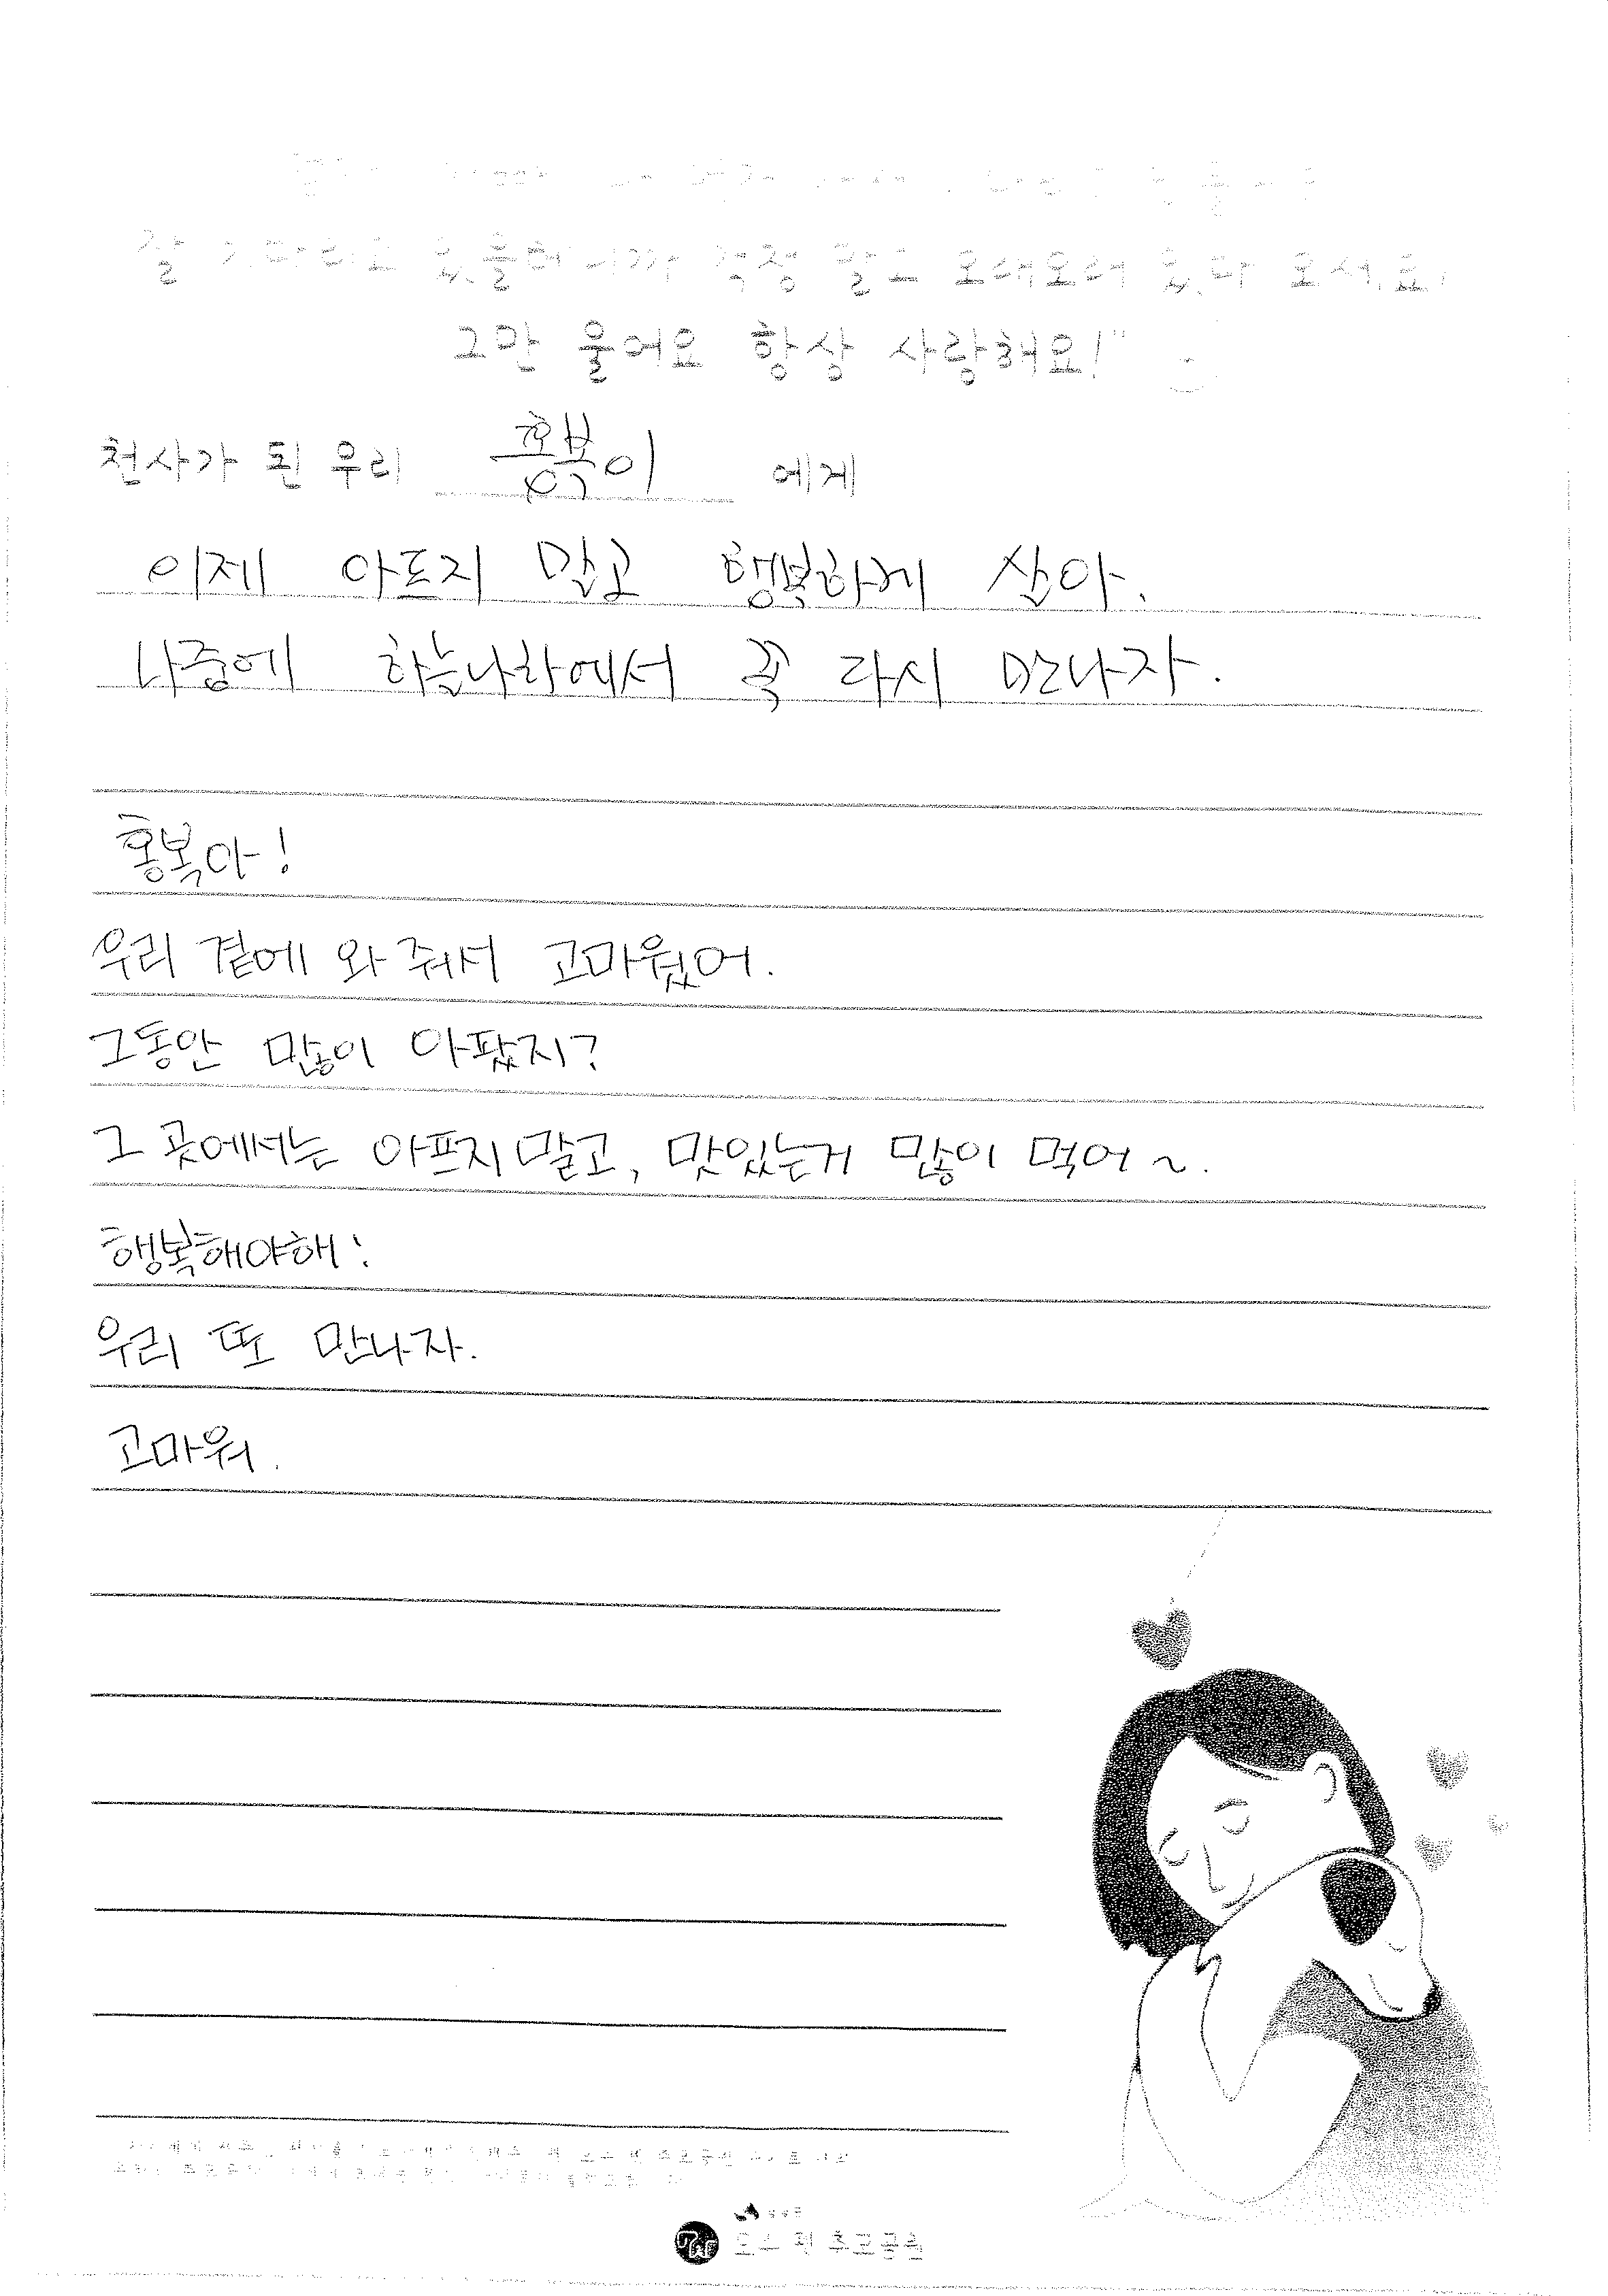 잘 기다리고 있을테니까 걱정 말고 오래오래 있다 오세요!
그만 울어요 항상 사랑해요!"
천사가 된 우리 홍복이 에게
이제 아프지 말고 행복하게 살아.
나중에 하늘나라에서 꼭 다시 만나자.
홍복아!
우리 곁에 와 줘서 고마웠어.
그동안 많이 아팠지?
그 곳에서는 아프지 말고, 맛있는거 많이 먹어~.
행복해야해!
우리 또 만나자.
고마워.